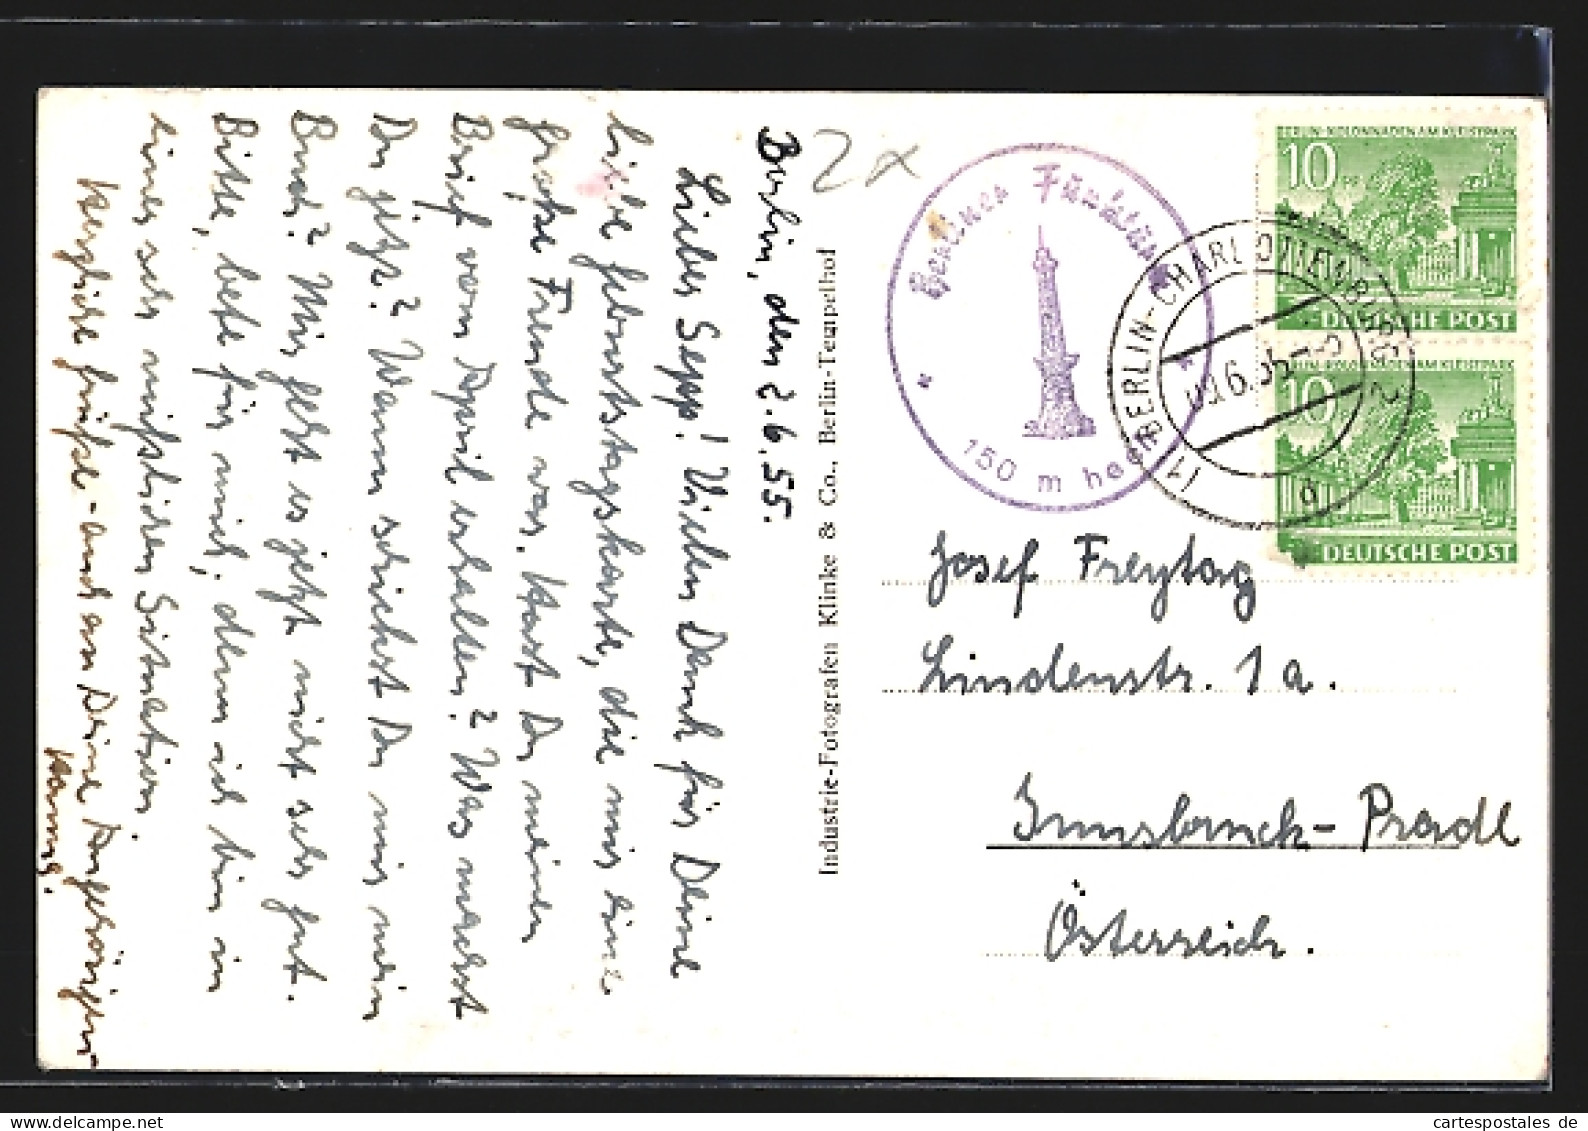 Berlin, den 2.6.55.
Lieber Sepp! Vielen Dank für Deine
liebe Geburtstagskarte, die mir eine
große Freude war. Hast Du meinen
Brief vom April erhalten? Was machst
Du jetzt? Wann schickst Du mir mein
Buch? Mir geht es jetzt nicht sehr gut.
Bitte, bete für mich, denn ich bin in
einer sehr mißlichen Situation.
Herzliche Grüße - auch an Deine Angehörigen
Hannes.
2x
Industrie-Fotografen Klinke & Co., Berlin-Tempelhof
Berliner Funkturm
150 m hoch
(1) BERLIN-CHARLOTTENBURG 2
BERLIN-KOLONNADEN AM KLEISTPARK
10
DEUTSCHE POST
BERLIN-KOLONNADEN AM KLEISTPARK
10
DEUTSCHE POST
Josef Freytag
Lindenstr. 1a.
Innsbruck-Pradl
Österreich.
cartespostales de